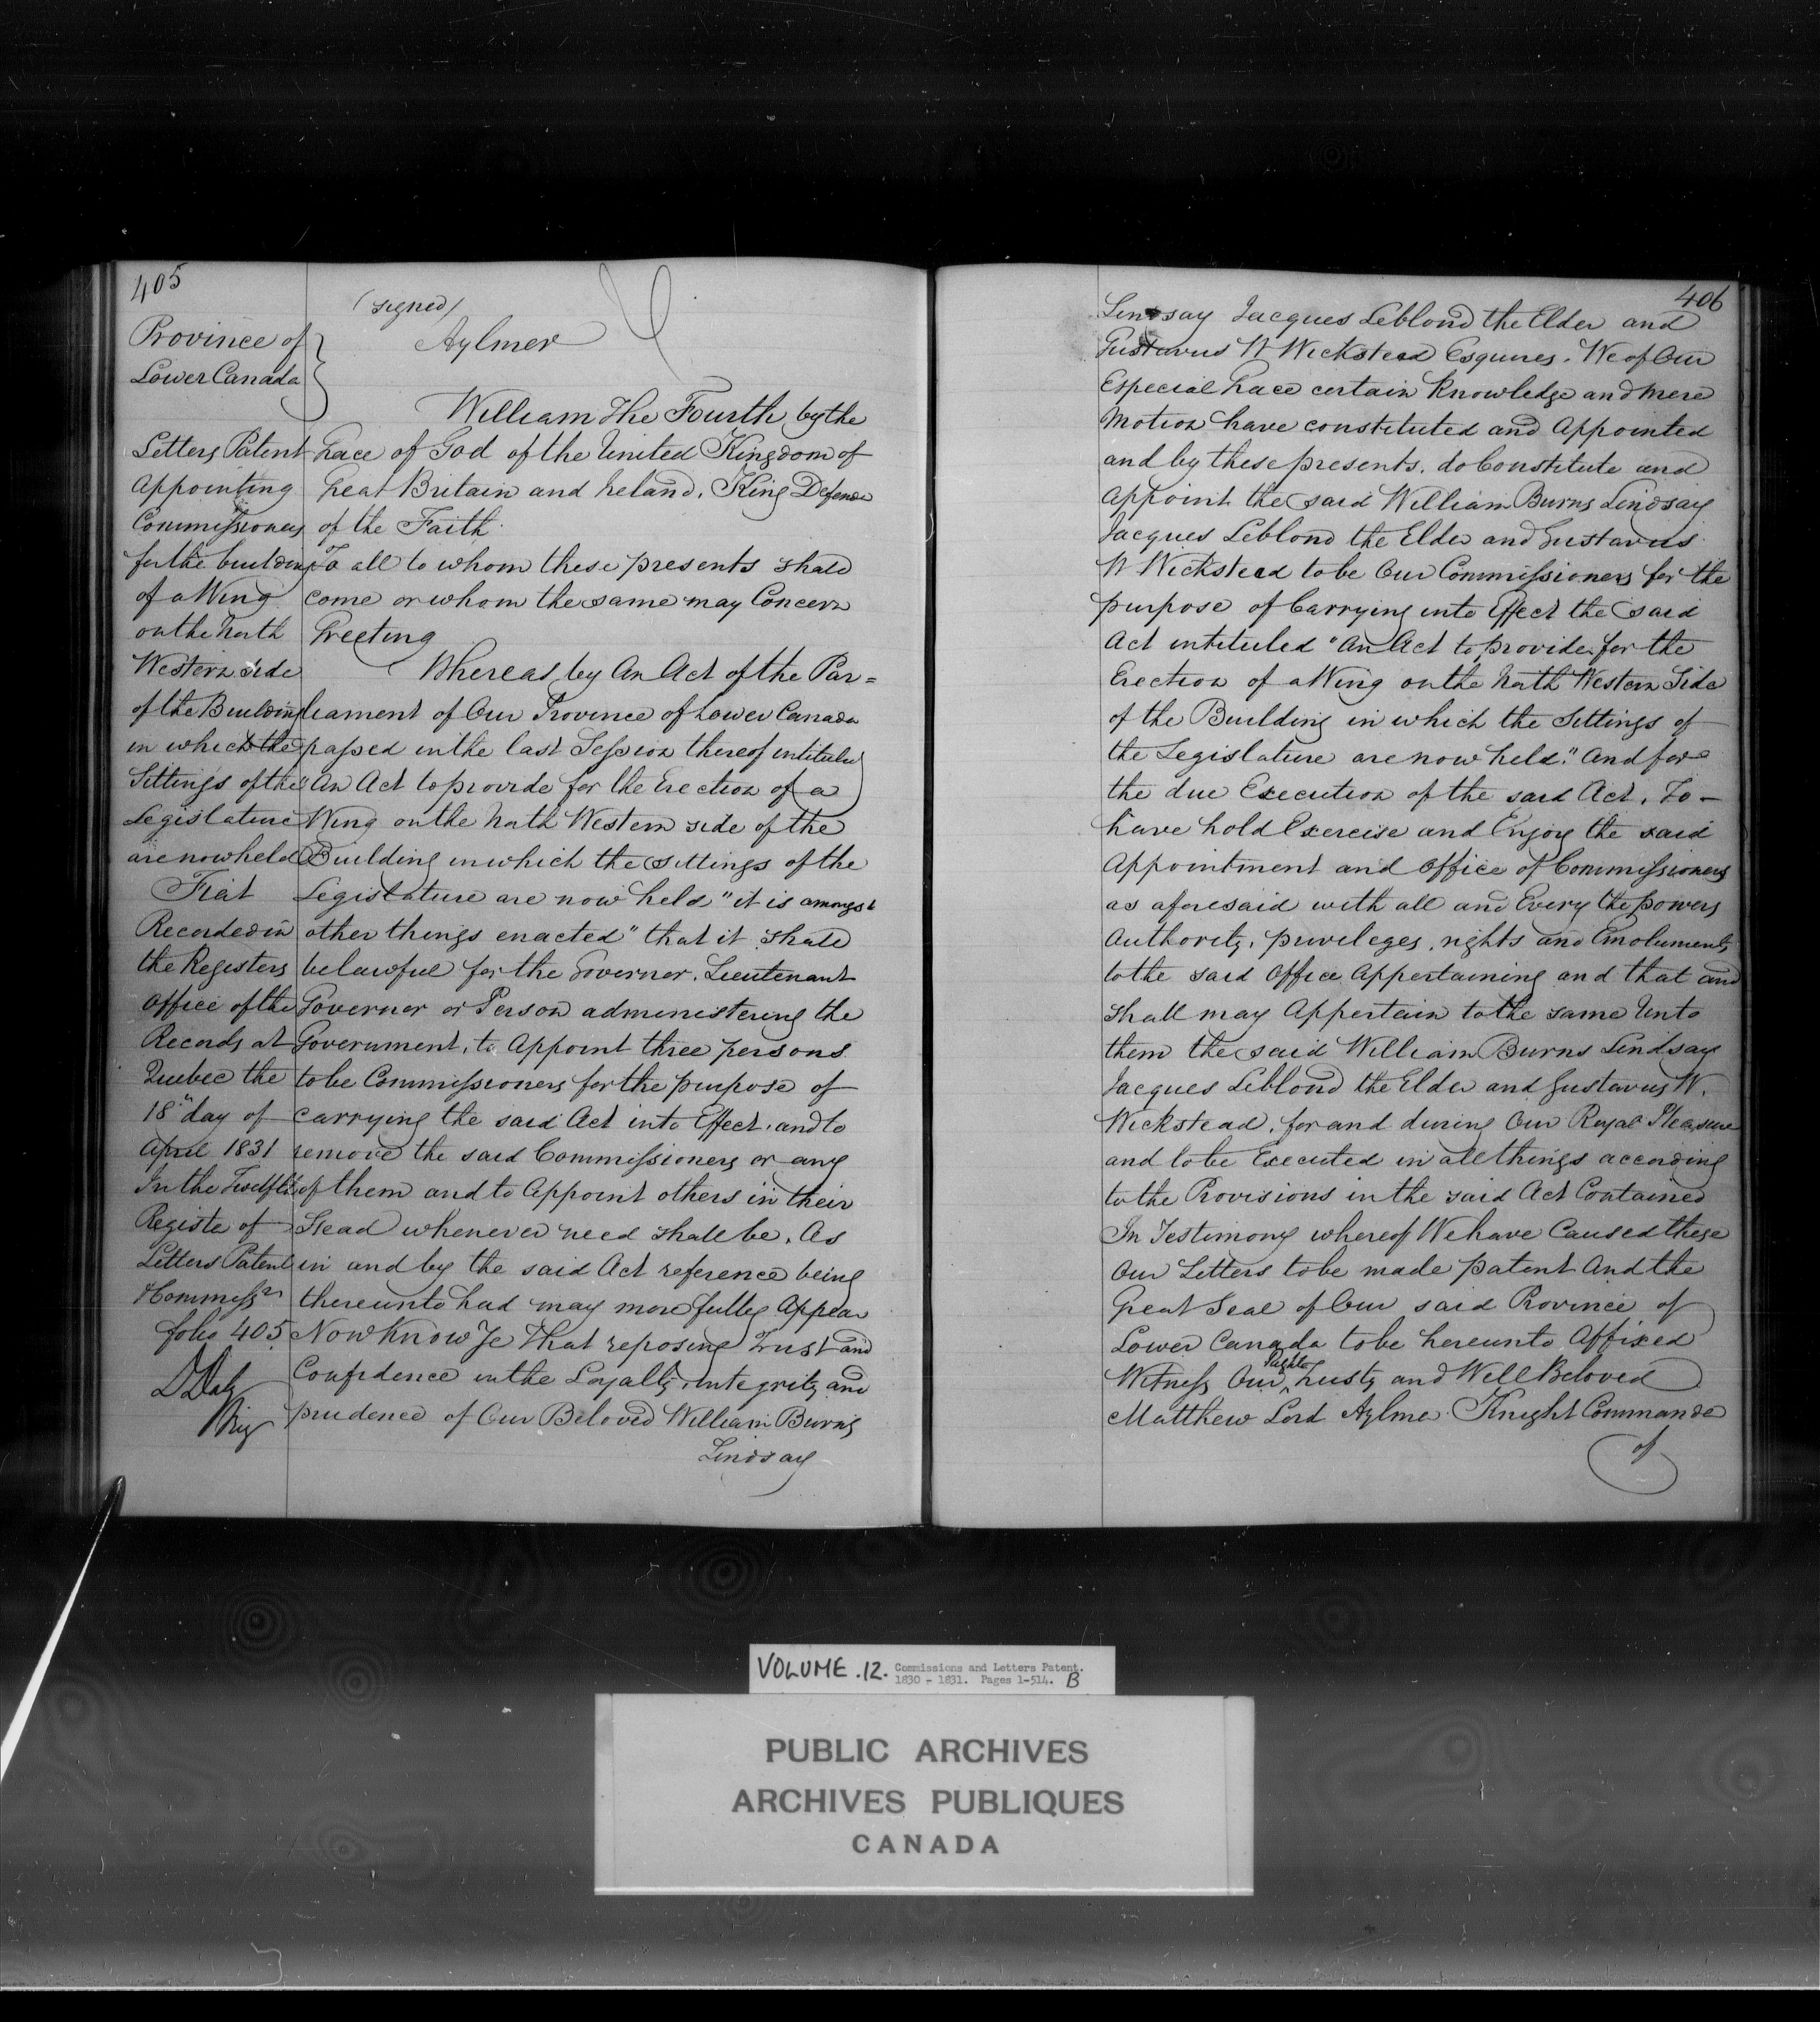 405
Province of
Lower Canada
Letters Patent
Appointing
Commissioners
for the building
of a Wing
on the North
Western side
of the Building
in which the
Sittings of the
Legislature
are now held
Fiat
Recorded in
the Registers
Office of the
Records at
Quebec the
18" day of
April 1831
In the Twelfth
Registe of
Letters Patent
& Commissns
folio 405.
DDaly
Rig
(signed)
Aylmer
William the Fourth by the
Grace of God of the United Kingdom of
Great Britain and Ireland, King Defender
of the Faith.
To all to whom these presents shall
come or whom the same may Concern
Greeting
Whereas by An Act of the Par=
liament of Our Province of Lower Canada
passed in the last Session thereof intituled
"An Act to provide for the Erection of a
Wing on the North Western side of the
Building in which the Sittings of the
Legislature are now held" it is amongst
other things enacted "that it shall
be lawful for the Governor, Lieutenant
Governor or Person administering the
Government, to Appoint three persons
to be Commissioners for the purpose of
carrying the said Act into Effect, and to
remove the said Commissioners or any
of them and to Appoint others in their
Stead whenever need shall be, As
in and by the said Act reference being
thereunto had may more fully Appear
Now Know Ye That reposing Trust and
Confidence in the Loyalty, integrity and
prudence of Our Beloved William Burns
Lindsay
406
Lindsay Jacques Leblond the Elder and
Gustavus W Wickstead Esquires. We of Our
Especial Grace certain Knowledge and mere
Motion have constituted and Appointed
and by these presents, do Constitute and
Appoint the said William Burns Lindsay
Jacques Leblond the Elder and Gustavus
W Wickstead to be Our Commissioners for the
purpose of Carrying into Effect the said
Act intituled "An Act to provide for the
Erection of a Wing on the North Western Side
of the Building in which the Sittings of
the Legislature are now held." And for
the due Execution of the said Act, To -
have hold Exercise and Enjoy the said
Appointment and Office of Commissioners
as aforesaid with all and Every the powers
Authority, privileges, rights and Emoluments
to the said Office Appertaining and that and
shall may Appertain to the same Unto
them the said William Burns Lindsay
Jacques Leblond the Elder and Gustavus W.
Wickstead, for and during Our Royal Pleasure
and to be Executed in all things according
to the Provisions in the said Act Contained
In Testimony whereof We have Caused these
Our Letters to be made patent And the
Great Seal of Our said Province of
Lower Canada to be hereunto Affixed
Witness Our Right Trusty and Well Beloved
Matthew Lord Aylmer Knight Commander
of
VOLUME.12. Commissions and Letters Patent.
1830 - 1831. Pages 1-514. B
PUBLIC ARCHIVES
ARCHIVES PUBLIQUES
CANADA